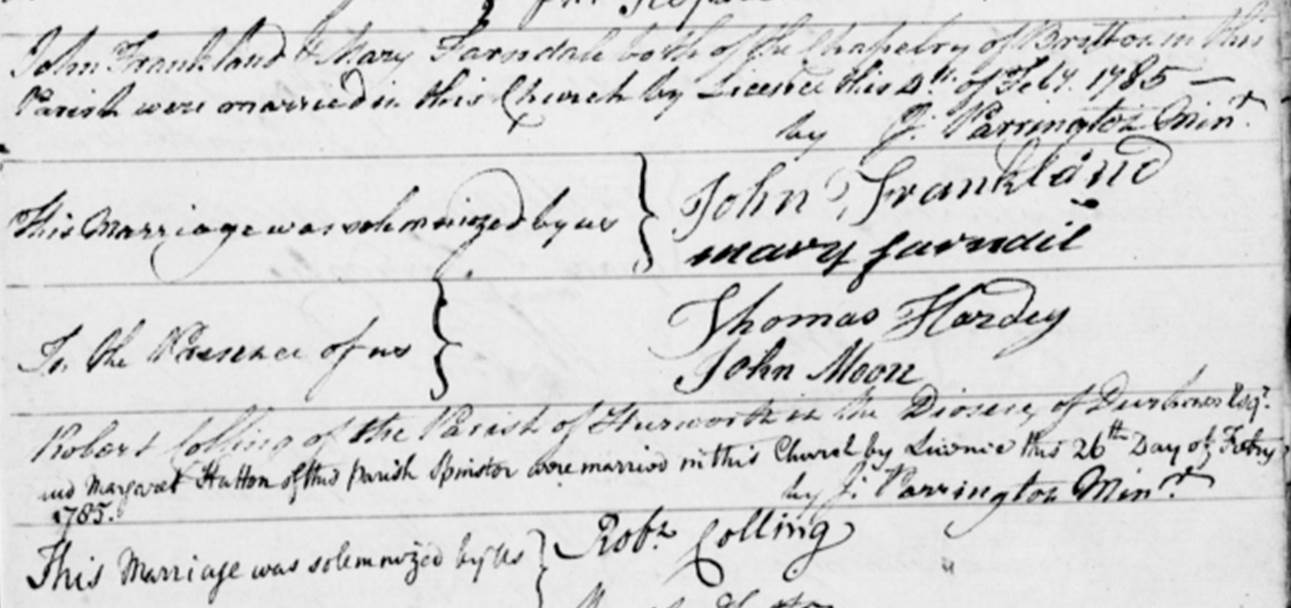 John Frankland & Mary Farndale both of the Chapelry of Brotton in this
Parish were married in this Church by Licence this 4th. of Feby. 1785 —
by J. Parrington Minr.
This Marriage was solemnized by us } John Frankland
mary farndil
In the Presence of us } Thomas Hardey
John Moon
Robert Colling of the Parish of Hurworth in the Diocese of Durham Esqr.
and Margaret Hutton of this Parish Spinster were married in this Church by Licence this 26th Day of Febry
1785. by J. Parrington Minr.
This Marriage was solemnized by us } Robt. Colling